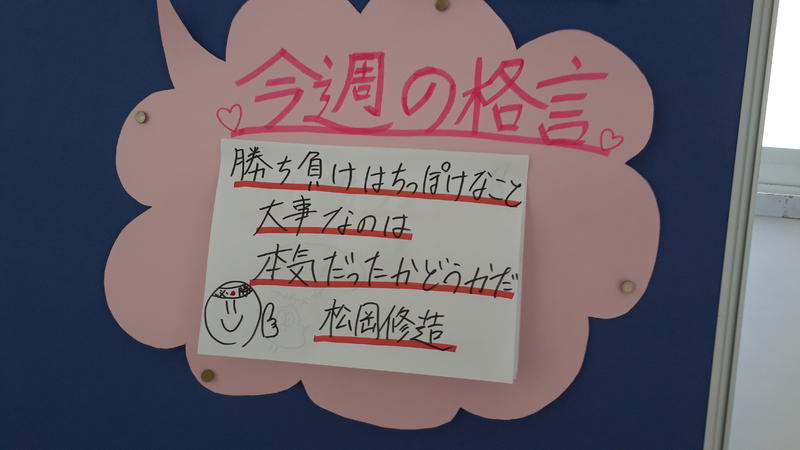 今週の格言
勝ち負けはちっぽけなこと
大事なのは
本気だったかどうかだ
松岡修造